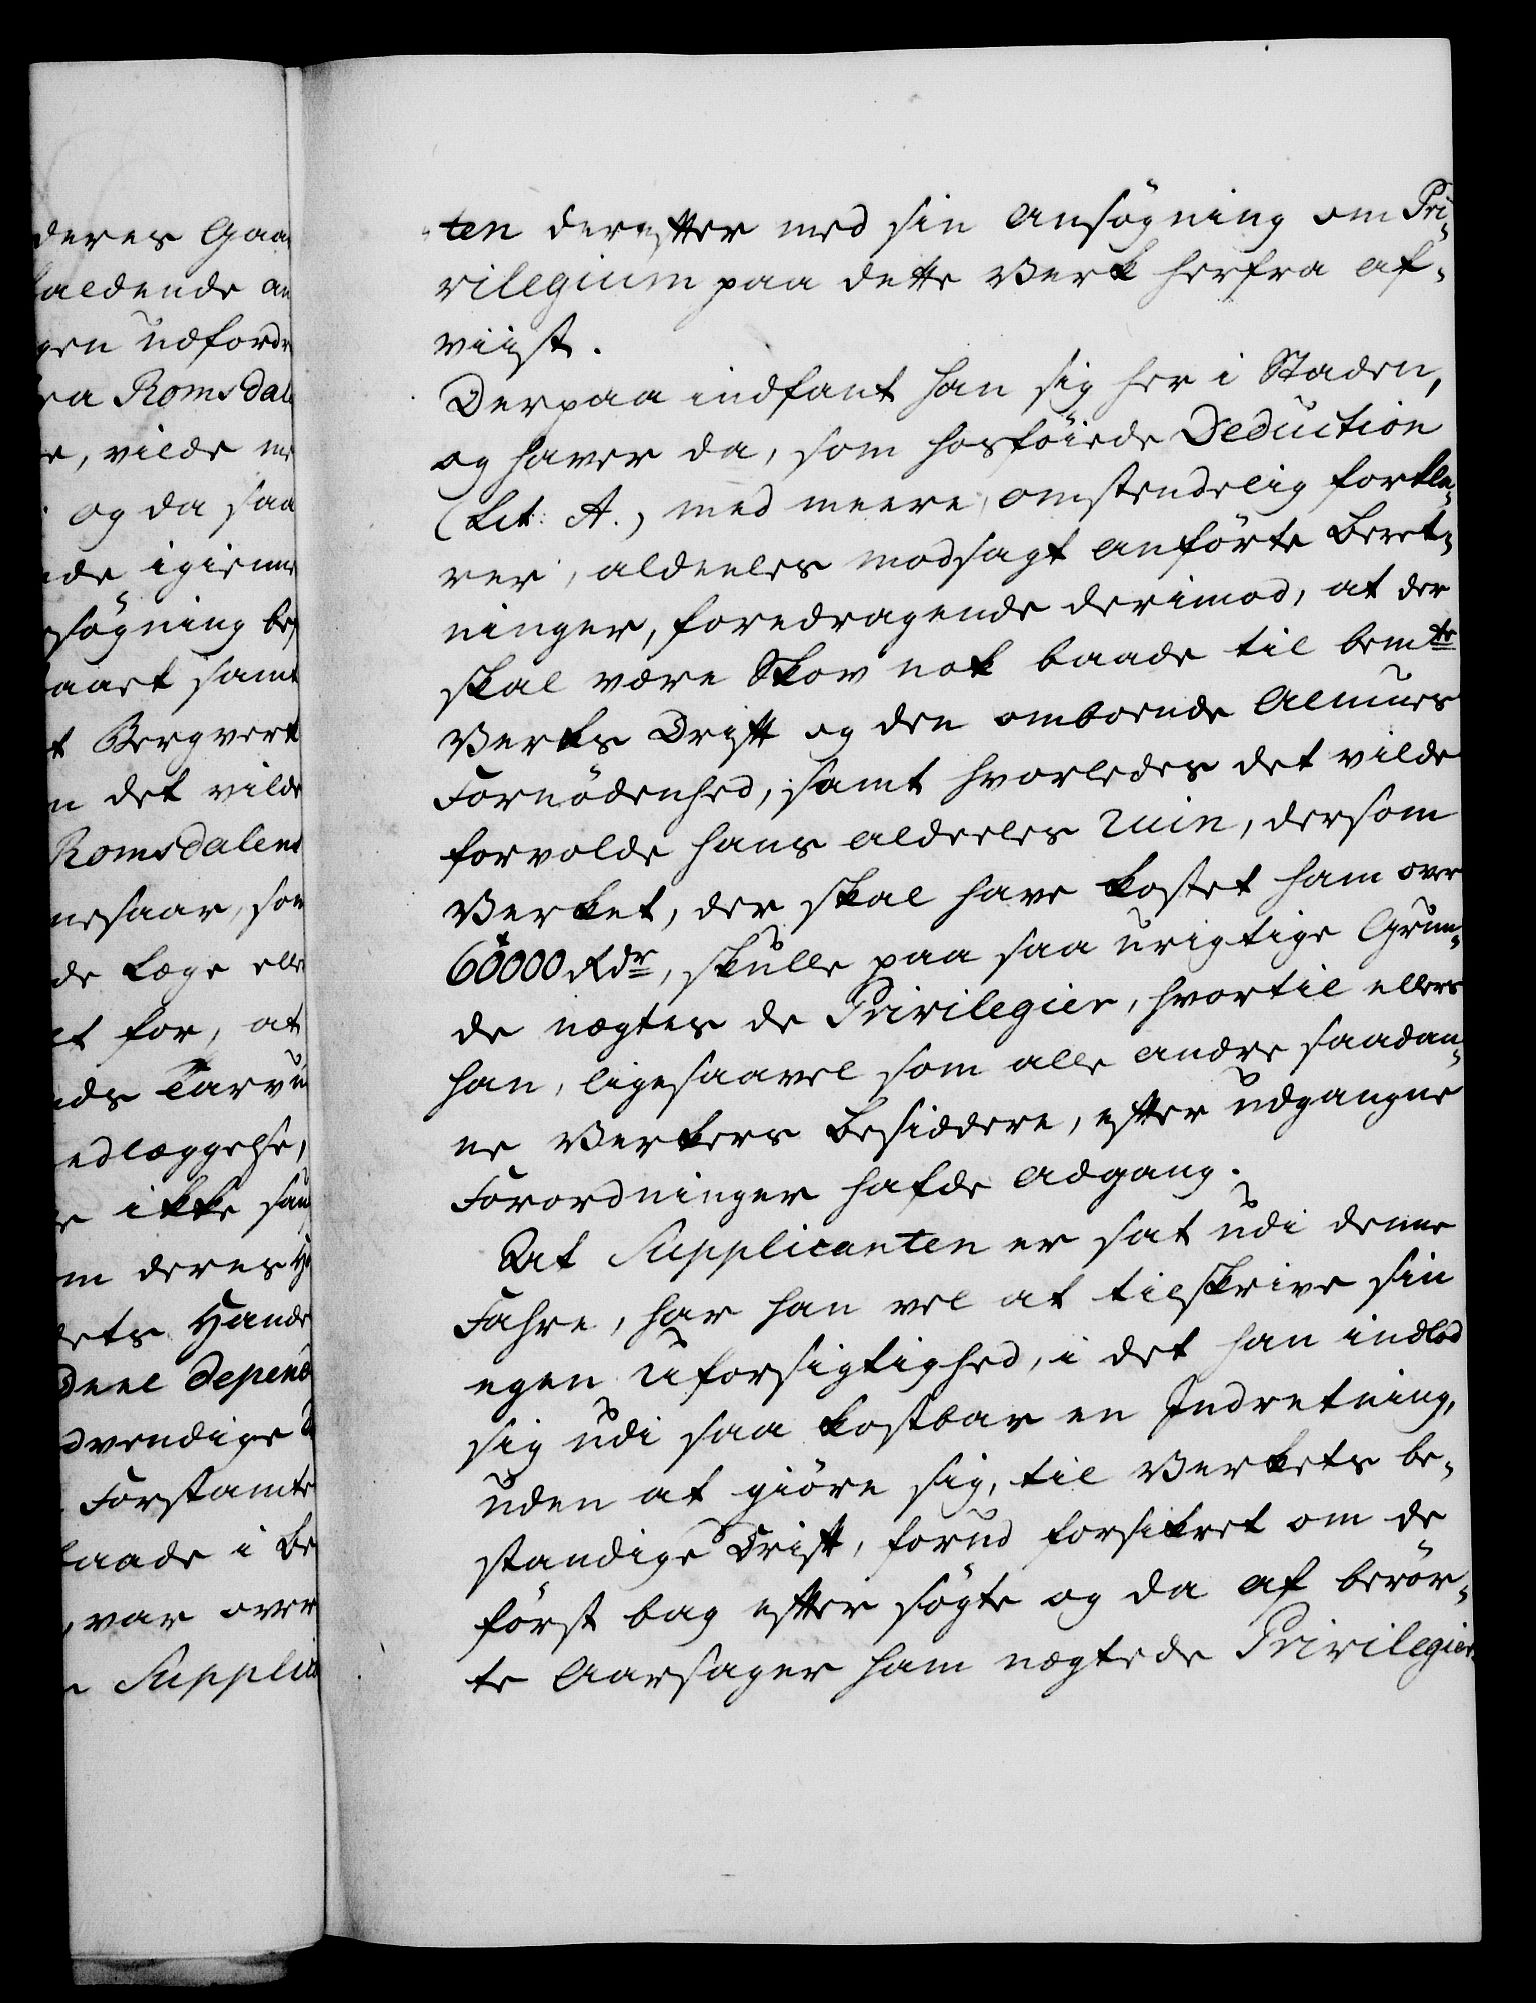 deres Gaa
faldende an
gen udfordr
ra Romsdal
e, vilde me
og da saa
de igienne
søgning be
aart samt
t Bergverk
n det vilde
Romsdalens
nesaar, som
de Læge elle
et for, at
ds Tarvu
edlæggelse,
e ikke saa
m deres H
ets Hande
deel depend
dvendige
Forstamte
faade i Be
, var over
n Supplica
ten derefter med sin Ansøgning om Pri-
vilegium paa dette Verk herfra af-
viist.
Derpaa indfant han sig her i Staden,
og haver da, som hosføiede Deduction
(Lit: A., med meere, omstendelig forkla-
rer, aldeeles modsagt anførte Beret-
ninger, foredragende derimod, at der
skal være Skov nok baade til bemte
Verks Drift og den omboende Almues
Fornødenhed, samt hvorledes det vilde
forvolde hans aldeeles ruin, dersom
Verket, der skal have kostet ham over
60000 Rdr, skulle paa saa urigtige Grun-
de nægtes de Privilegier, hvortil ellers
han, ligesaavel som alle andre saadan-
ne Verkers Besiddere, efter udgangne
Forordninger hafde Adgang.
At Supplicanten er sat udi denne
Fahre, har han vel at tilskrive sin
egen Uforsigtighed, i det han indlod
sig udi saa kostbar en Indretning,
uden at giøre sig, til Verkets be-
standige Drift, forud forsikret om de
først bag efter søgte og da af berør-
te Aarsager ham nægtede Privilegier.